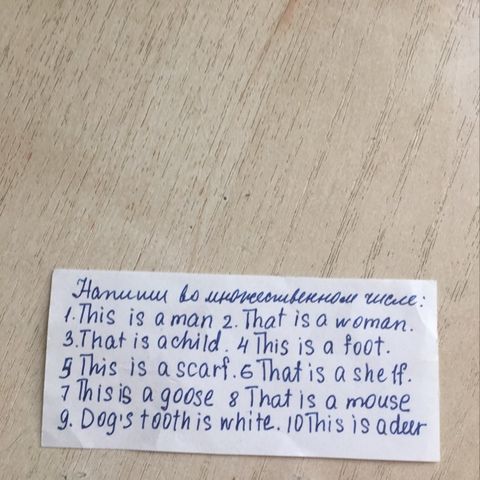 Напиши во множественном числе:
1. This is a man 2. That is a woman.
3. That is a child. 4 This is a foot.
5 This is a scarf. 6 That is a shelf.
7 This is a goose 8 That is a mouse
9. Dog's tooth is white. 10 This is a deer